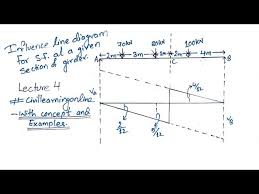 Influence line diagram
for S.F. at a given
section of girder.
Lecture 4
# Civillearningonline
- With concept and
Examples.
70kN 80kN 100kN
A 2m 3m 1m 2m 4m B
C
VA
VB